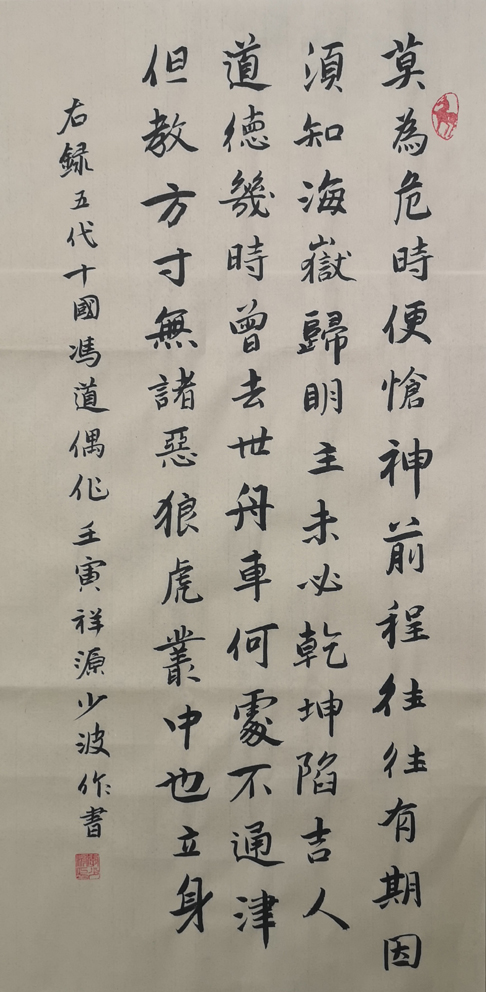 莫為危時便愴神前程往往有期因
須知海嶽歸明主未必乾坤陷吉人
道德幾時曾去世舟車何處不通津
但教方寸無諸惡狼虎叢中也立身
右録五代十國馮道偶作壬寅祥源少波作書